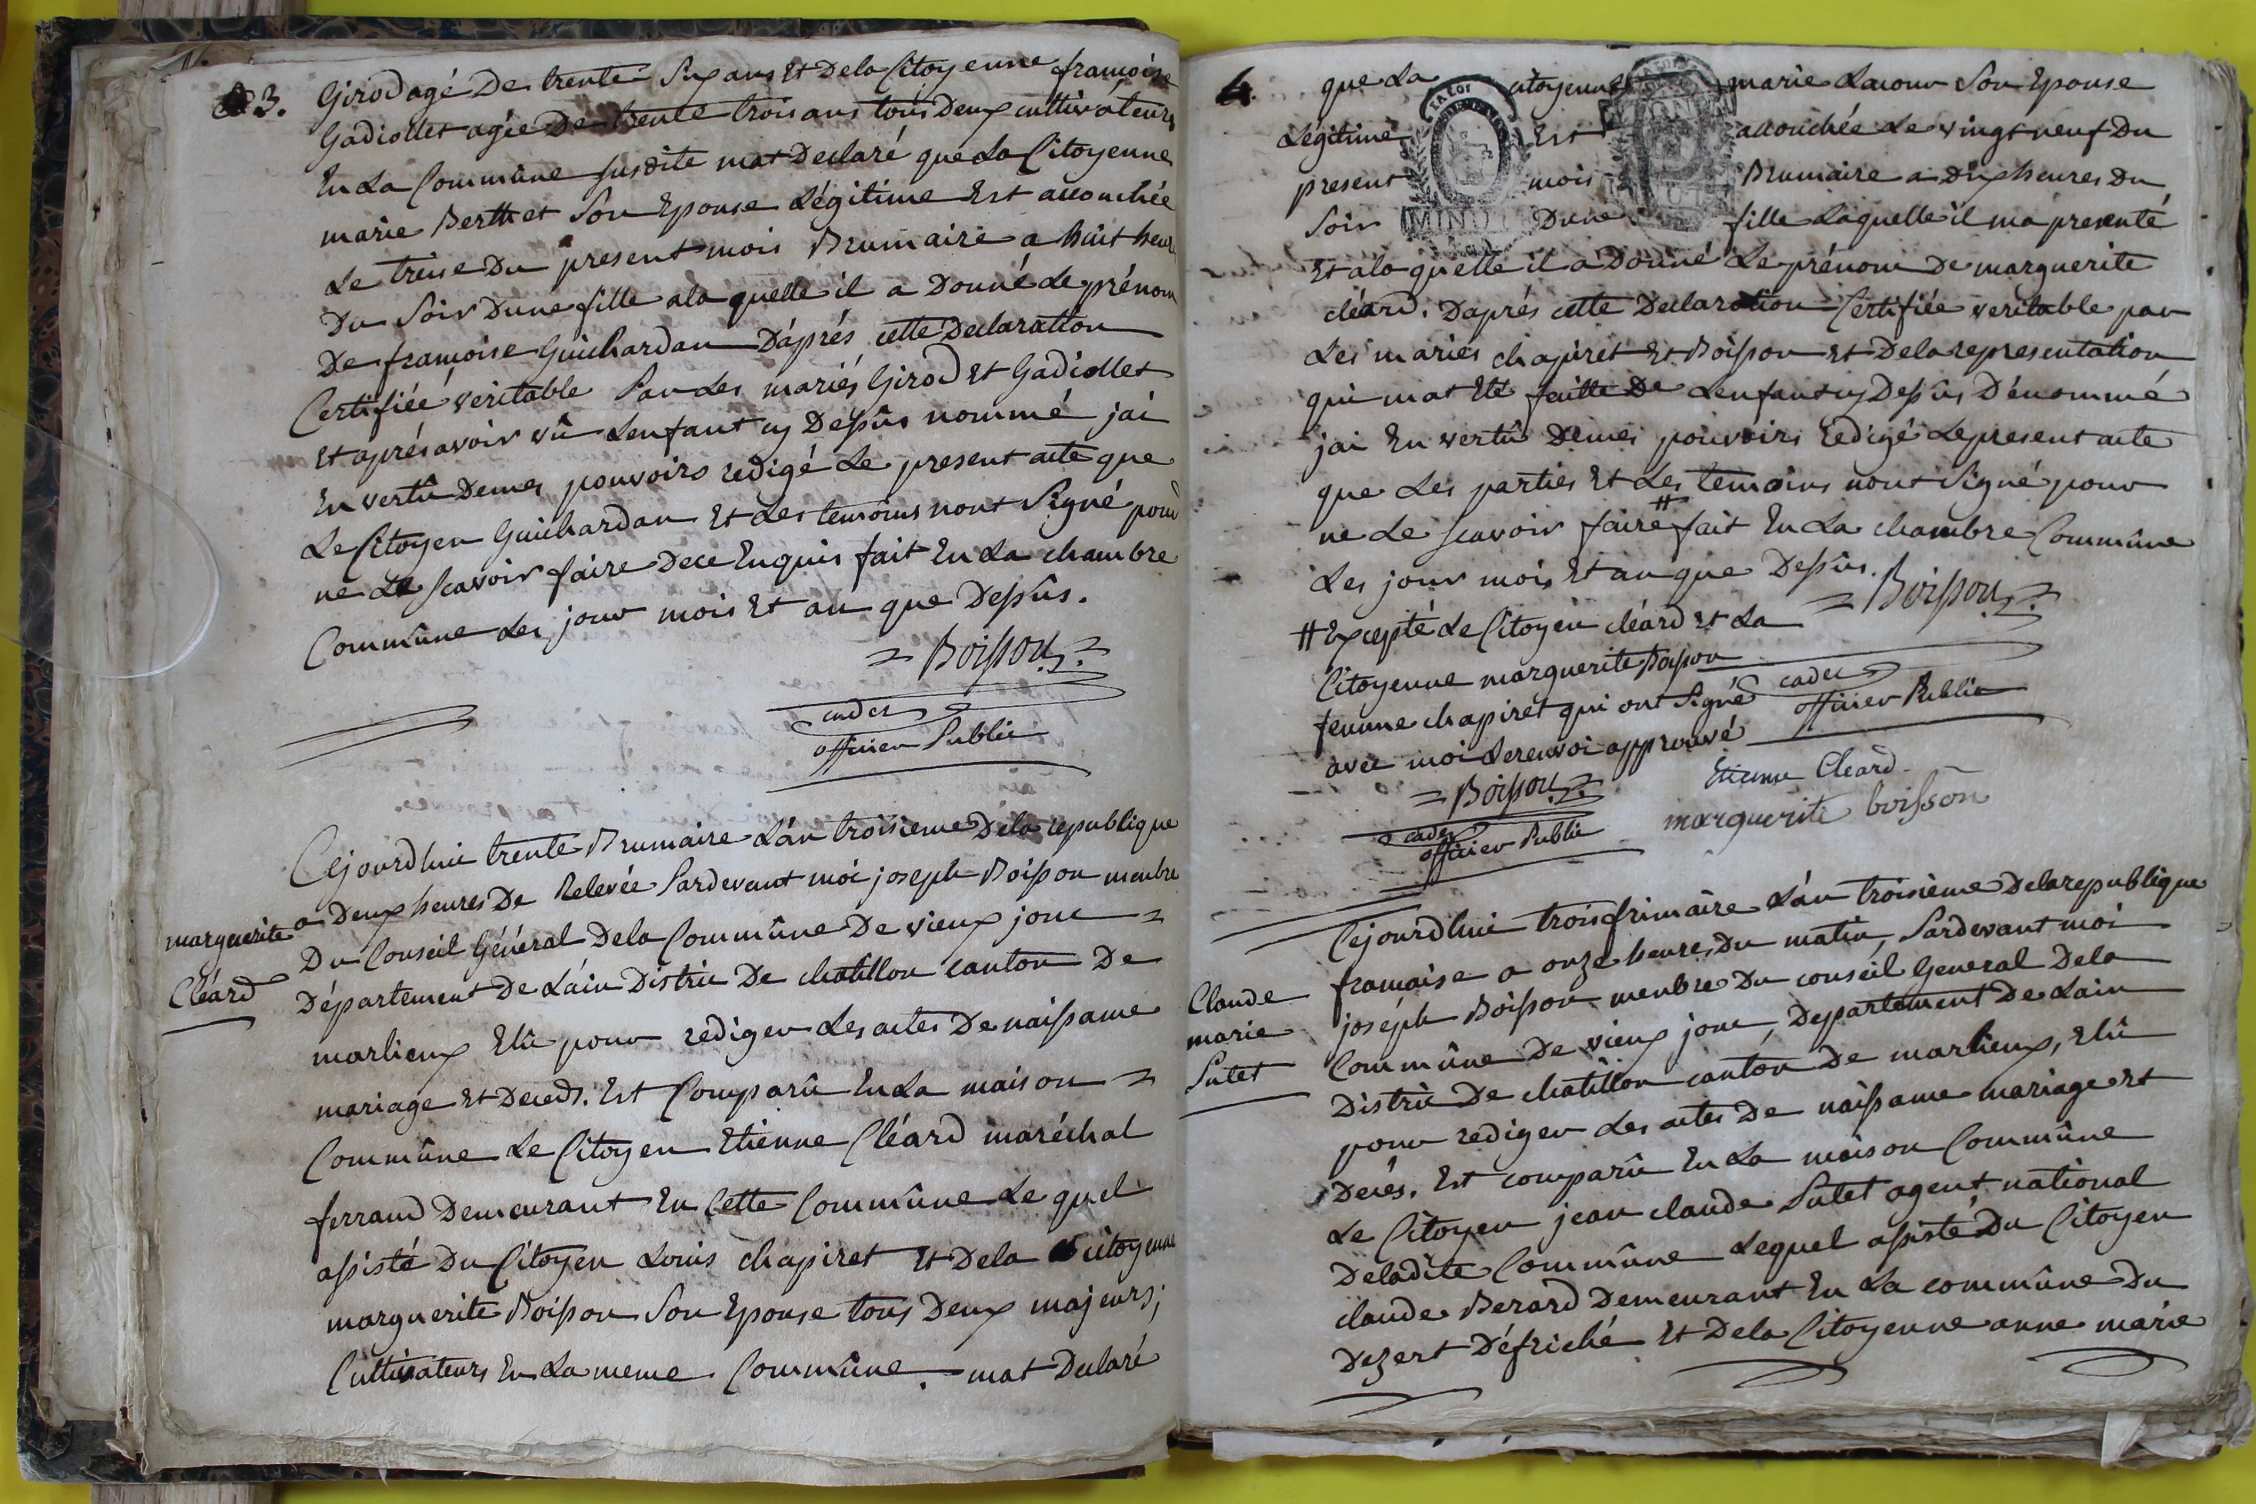 3.
Girod agé De trente Six ans Et Dela Citoyenne françoise
Gadiollet agée De trente trois ans tous Deux cultivateurs
En La Commûne susdite mat Declaré que La Citoyenne
marie Berthet Son Epouse Légitime Est accouchée
Le treise Du present mois Brumaire a huit heur
Du Soir Dune fille ala quelle il a Donné Le prénom
De francoise Guichardan D'aprés cette Declaration
Certifiée veritable Par Les mariés Girod Et Gadiollet
Et aprés avoir vû Lenfant cy Dessûs nommé jai
En vertû Demes pouvoirs redigé Le present acte que
Le Citoyen Guichardan Et Les temoins nont Signé pour
ne Le scavoir faire Dece Enquis fait En La chambre
Commûne Les jour mois Et an que Dessûs.
= Boisson
cader
officier Public
marguerite
Cléard
Cejourdhui trente Brumaire L'an troisieme Dela republique
a Deux heures De Relevée Pardevant moi joseph Boisson menbre
Du Conseil Général Dela Commûne De vieux jonc =
Département De L'ain Distric De chatillon canton De
marlieux Elû pour rediger Les actes De naissance
mariage Et Deceds. Est Comparû En La maison =
Commûne Le Citoyen Etienne Cléard maréchal
ferrand Demeurant En Cette Commûne Le quel
assisté Du Citoyen Louis chapiret Et Dela citoyenne
marguerite Boisson Son Epouse tous Deux majeurs;
Cultivateurs En La meme Commûne. mat Declaré
4.
que La citoyenne marie Lacour Son Epouse
Légitime Est accouchée Le vingt neuf Du
present mois Brumaire a Dix heures Du
Soir Dune fille Laquelle il ma presenté
Et ala quelle il a Donné Le prénom De marguerite
cléard. D'aprés cette Declaration Certifiée veritable par
Les mariés chapiret Et Boisson Et Dela representation
qui mat Eté faitte De Lenfant cy Dessûs Dénommé
jai En vertû Demes pouvoirs redigé Lepresent acte
que Les parties Et Les temoins nont Signé pour
ne Le scavoir faire # fait En La chambre Commûne
Les jour mois Et an que Dessûs. = Boisson
# Excepté Le Citoyen cléard Et La
Citoyenne marguerite Boisson
femme chapiret qui ont Signé
avec moi Lerenvoi approuvé
cader
officier Public
= Boisson
cader
officier Public
Etienne Cleard
marguerite boisson
Claude
marie
Putet
Cejourdhui trois frimaire L'an troisième Delarepublique
francaise a onze heures Du matin, Pardevant moi
joséph Boisson menbre Du conseil General Dela
Commûne De vieux jonc, Departement De Lain
Distric De chatillon canton De marlieux, Elû
pour rediger Les actes De naissance mariage Et
Decés. Est comparû En La maison Commûne
Le Citoyen jean claude Putet agent national
Deladite Commûne Lequel assisté Du Citoyen
claude Berard Demeurant En La commûne Du
Dezert Défriché Et Dela Citoyenne anne marie